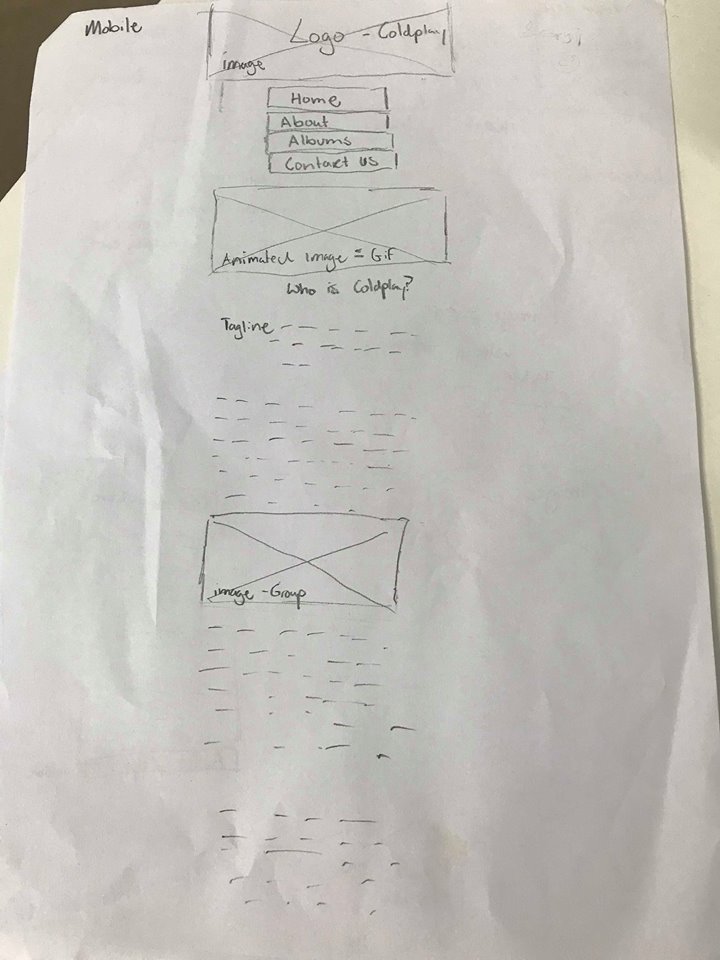 Mobile
Logo - Coldplay
image
Home
About
Albums
Contact us
Animated image = Gif
Who is Coldplay?
Tagline
image - Group